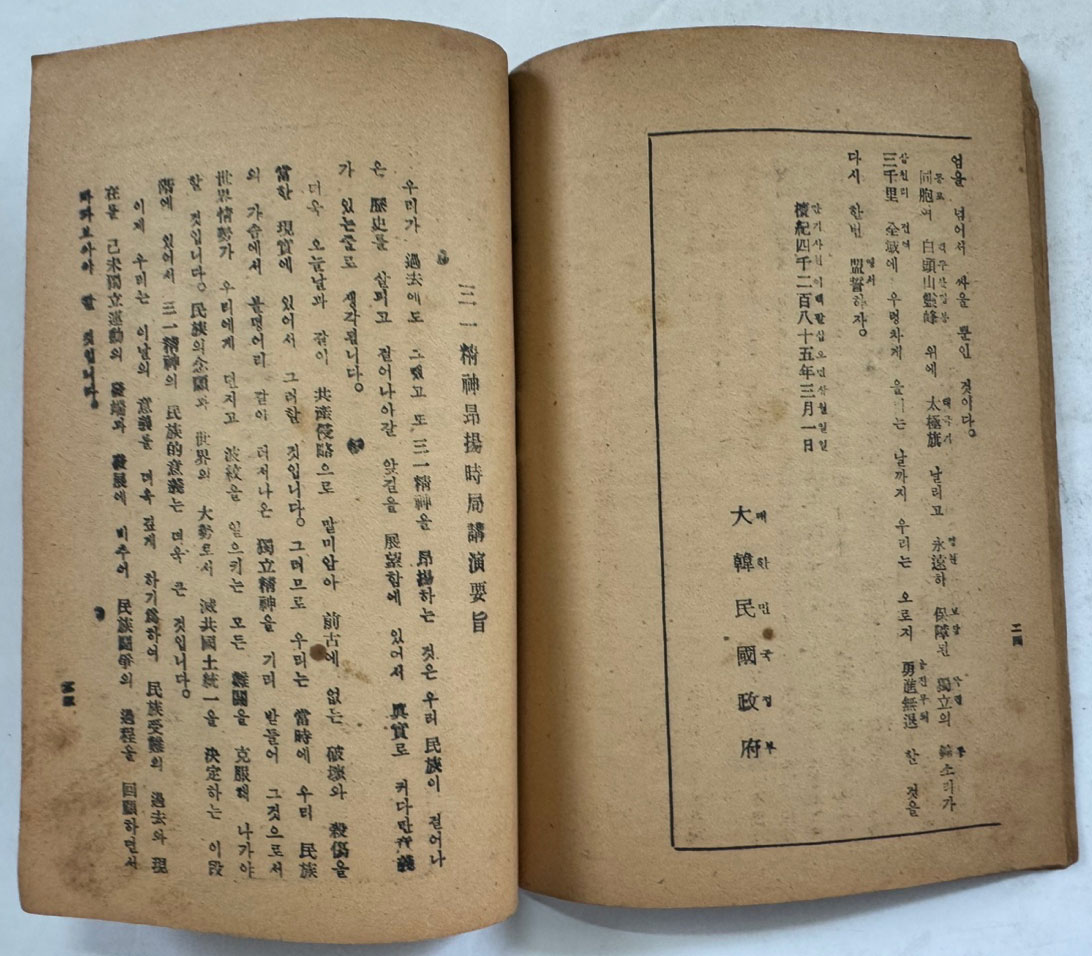 二四
엄을 넘어서 싸울 뿐인 것이다。
동포 백두산영봉 태극기 영원 보장 독립 종
同胞여 白頭山靈峰 위에 太極旗 날리고 永遠히 保障된 獨立의 鐘소리가
삼천리 전역 용진무퇴
三千里 全域에 우렁차게 울리는 날까지 우리는 오로지 勇進無退 한 것을
맹서
다시 한번 盟誓하자。
단기사천이백팔십오년삼월일일
檀紀四千二百八十五年三月一日
대한민국정부
大韓民國政府
三一精神昂揚時局講演要旨
우리가 過去에도 그랬고 또 三一精神을 昂揚하는 것은 우리 民族이 걸어나
은 歷史를 살피고 걸어나아갈 앞길을 展望함에 있어서 眞實로 커다란 意義
가 있는줄로 생각됩니다。
더욱 오늘날과 같이 共産侵略으로 말미암아 前古에 없는 破壞와 殺傷을
當한 現實에 있어서 그러할 것입니다。그러므로 우리는 當時에 우리 民族
의 가슴에서 불덩어리 같이 터져나온 獨立精神을 기리 받들어 그것으로서
世界情勢가 우리에게 던지고 波紋을 일으키는 모든 難關을 克服해 나가야
할 것입니다。民族의 念願과 世界의 大勢로서 滅共國土統一을 決定하는 이 段
階에 있어서 三一精神의 民族的意義는 더욱 큰 것입니다。
이제 우리는 이날의 意義를 더욱 깊게 하기爲하여 民族受難의 過去와 現
在를 己未獨立運動의 發端과 發展에 비추어 民族鬪爭의 過程을 回顧하면서
따져보아야 할 것입니다。
二五